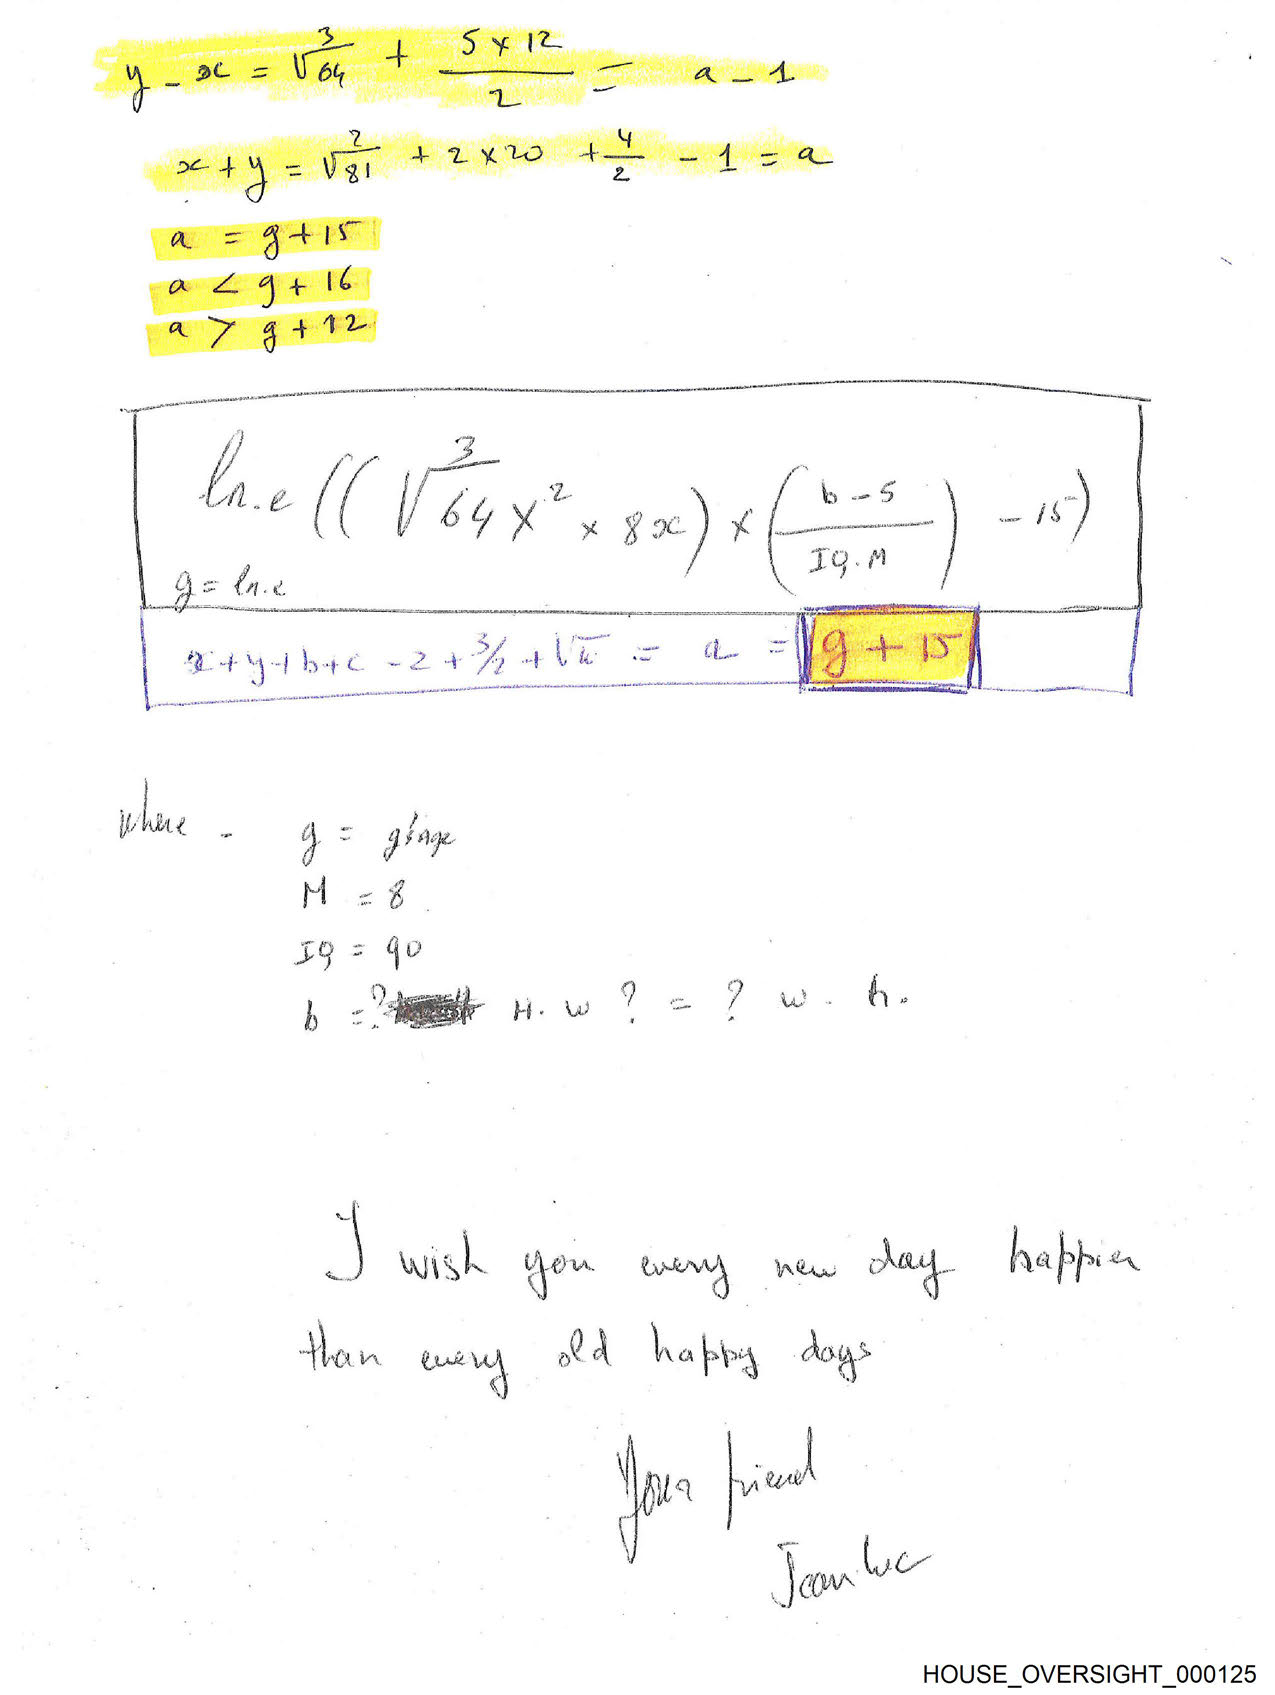 y - x = ∛64 + (5 x 12)/2 = a - 1
x + y = ²√81 + 2 x 20 + 4/2 - 1 = a
a = g + 15
a < g + 16
a > g + 12
ln.e ((∛64 X² x 8x) x ((b - 5)/(IQ.M)) - 15)
g = ln.e
x + y + b + c - 2 + 3/2 + √ = a = g + 15
where - g = g'age
M = 8
IQ = 90
b = ? H. w ? = ? w. h.
I wish you every new day happier
than every old happy days
Your friend
Jean Luc
HOUSE_OVERSIGHT_000125